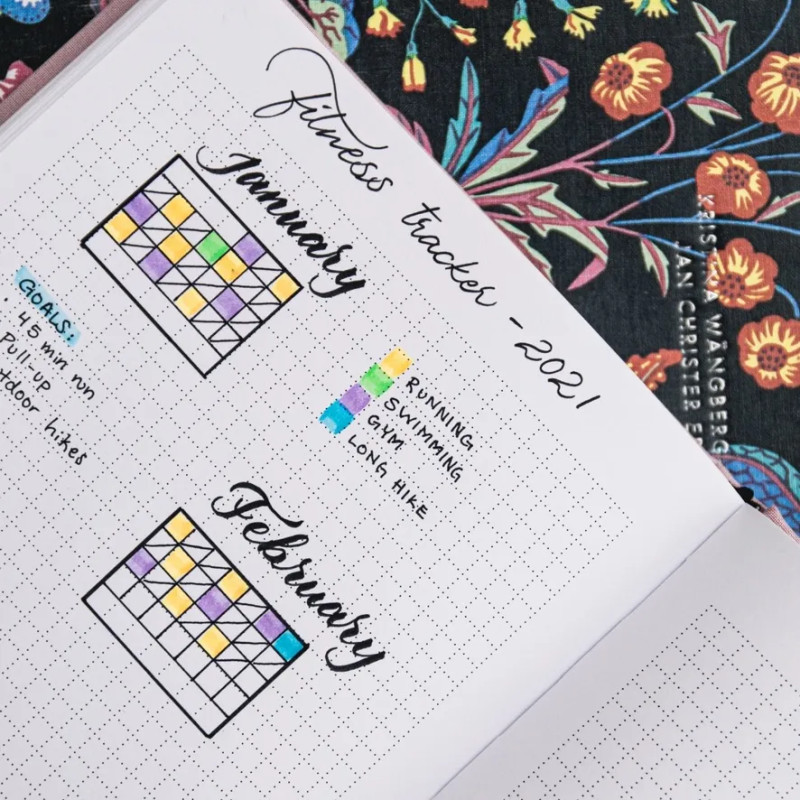 fitness tracker - 2021
January
GOALS:
45 min run
Pull-up
hikes
RUNNING
SWIMMING
GYM
LONG HIKE
February
WÄNGBERG
JAN CHRISTER